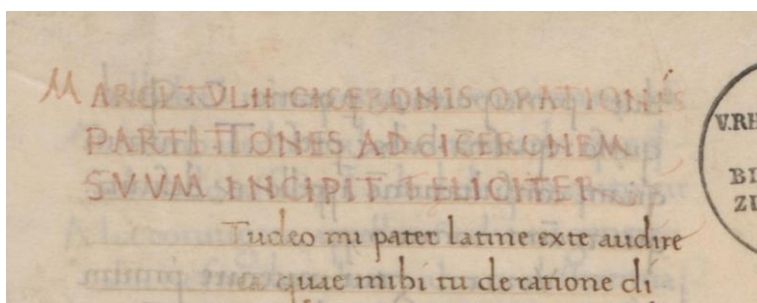 MARCI TVLII CICERONIS ORATIONIS
PARTITIONES AD CICERONEM
SVVM INCIPIT FELICITER
Tudeo mi pater latine ex te audire
ea quae mihi tu de ratione di
V.RH
BI
ZU